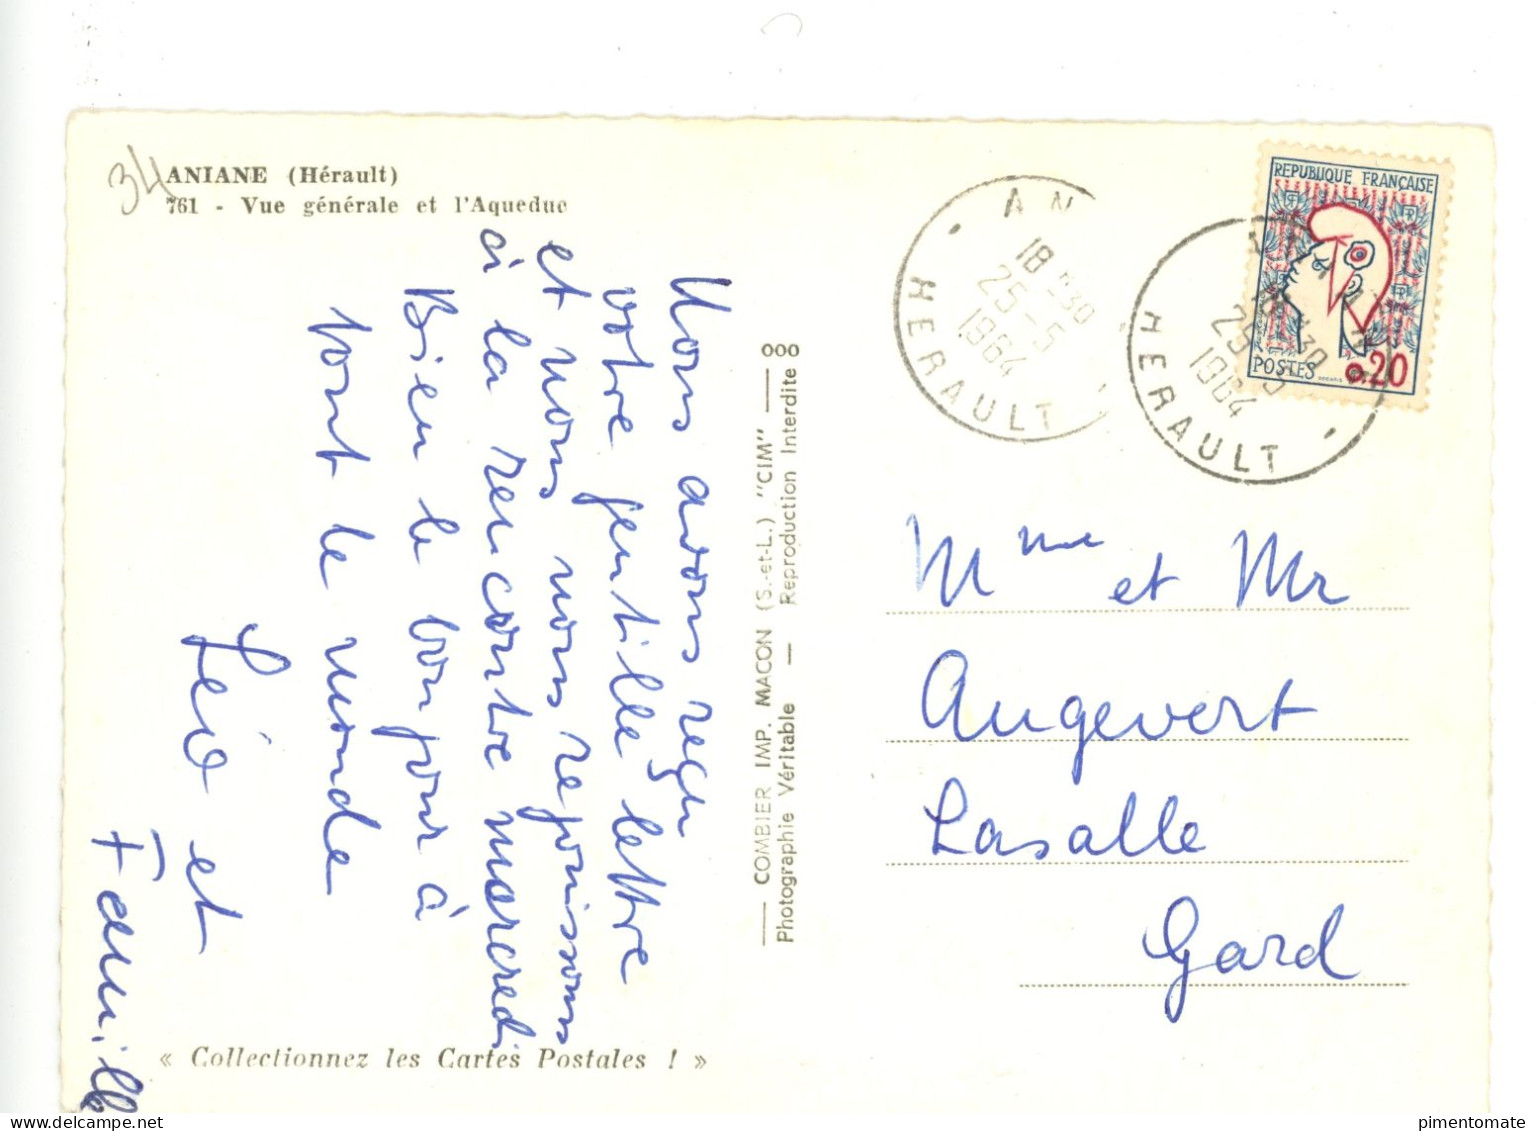 34
ANIANE (Hérault)
761 - Vue générale et l'Aqueduc
Nous avons reçu
votre gentille lettre
et nous nous rejouissons
à la rencontre mercredi
Bien le bonjour à
tout le monde
Léo et
Famille
« Collectionnez les Cartes Postales ! »
COMBIER IMP. MACON (S.-et-L.) "CIM"
Photographie Véritable — Reproduction Interdite
000
AN
18 H 30
25-5
1964
HERAULT
REPUBLIQUE FRANÇAISE
RF
POSTES
0.20
18 H 30
25-5
1964
HERAULT
Mme et Mr
Angevert
Lasalle
Gard
pimentomate